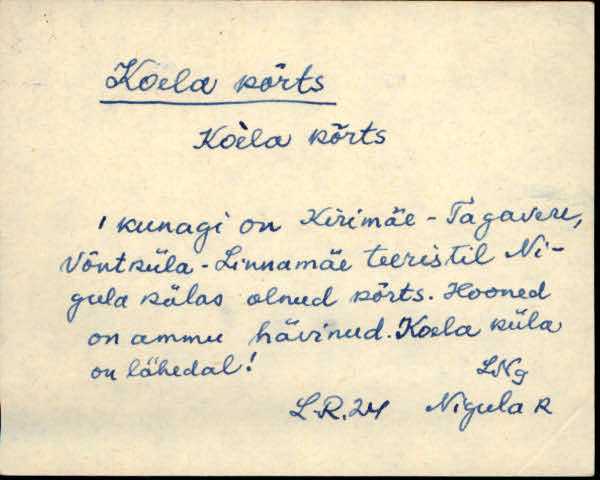 Koela kõrts
Koèla kõrts
' kunagi on Kirimäe - Tagavere,
Võntküla - Linnamäe teeristil Ni-
gula külas olnud kõrts. Hooned
on ammu hävinud. Koela küla
on lähedal!
LNg
L.R. 24 Nigula R